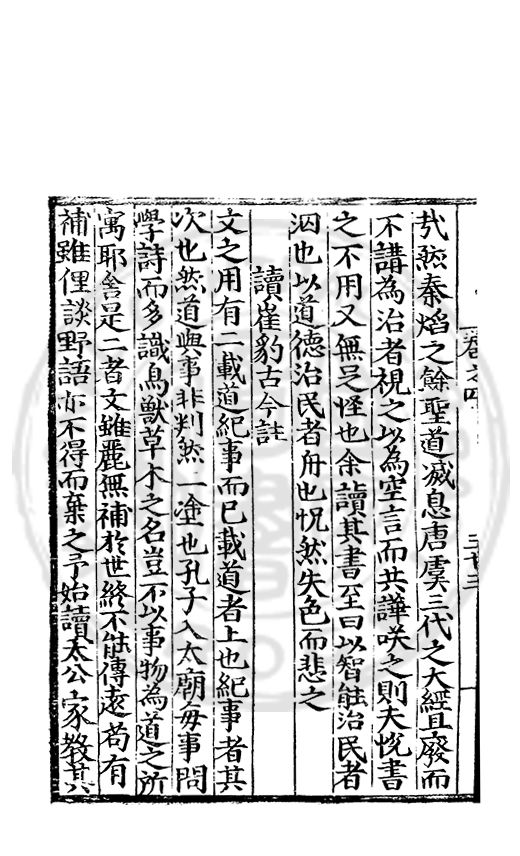 卷之四
三十三
哉然秦焰之餘聖道滅息唐虞三代之大經且廢而
不講為治者視之以為空言而共譁咲之則天悅書
之不用又無足怪也余讀其書至曰以智能治民者
泅也以道德治民者舟也怳然失色而悲之
讀崔豹古今註
文之用有二載道紀事而已載道者上也紀事者其
次也然道與事非判然一塗也孔子入太廟每事問
學詩而多識鳥獸草木之名豈不以事物為道之所
寓耶舍是二者文雖麗無補於世終不能傳遠苟有
補雖俚談野語亦不得而棄之予始讀太公家教其